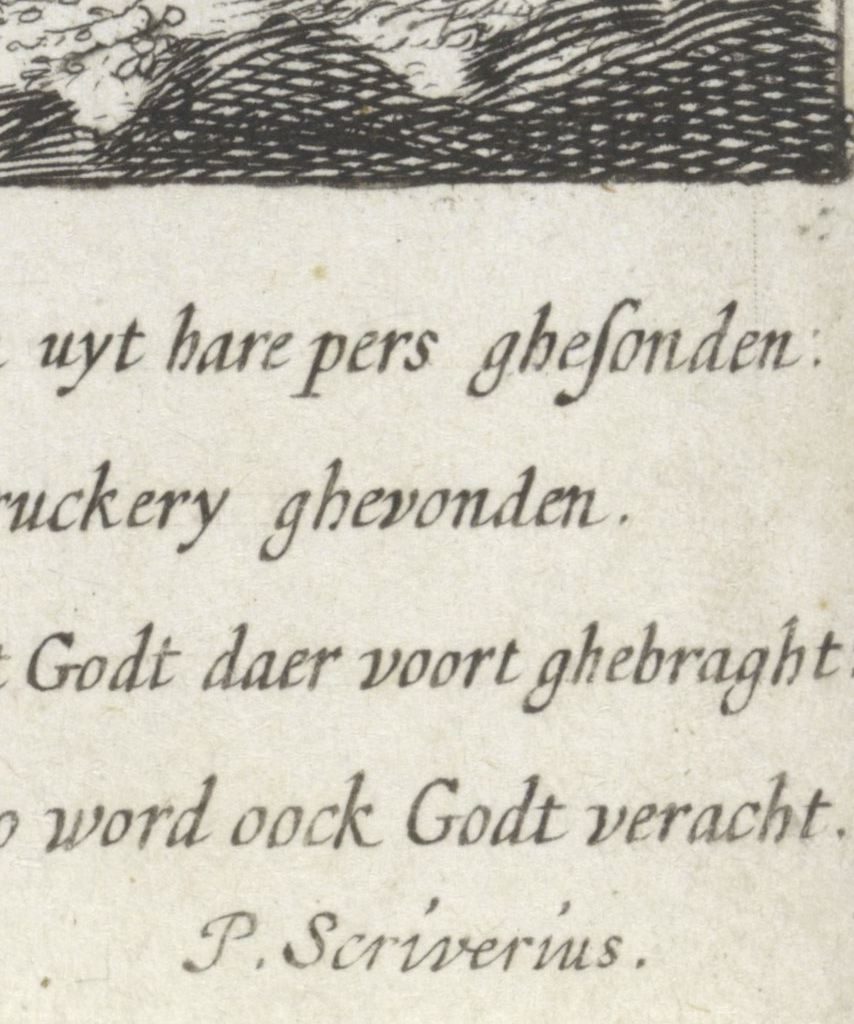 uyt hare pers gheſonden:
ruckery ghevonden.
t Godt daer voort ghebraght:
o word oock Godt veracht.
P. Scriverius.